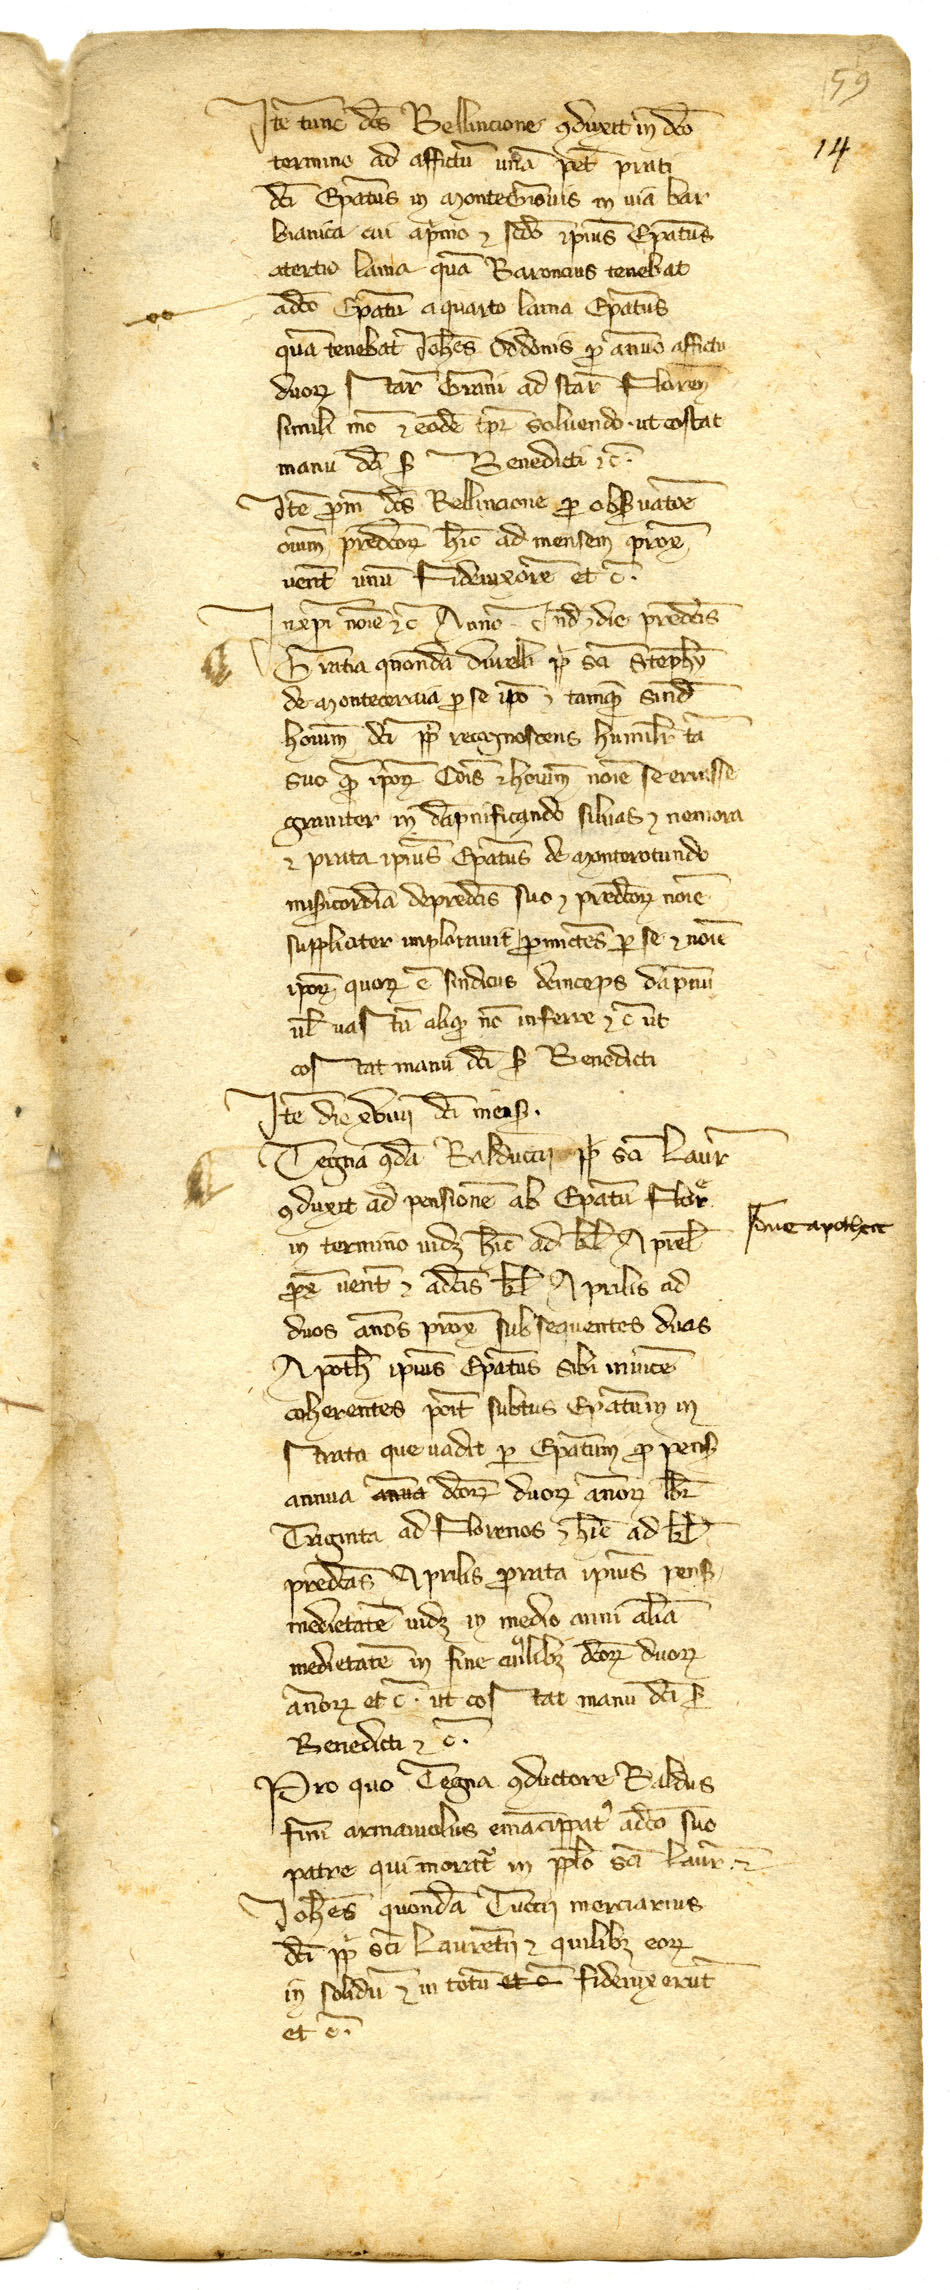 59
14
Itē tunc dc̄s Bellincione ꝯduxit in dc̄o
termino ad affictū unā pet̄ prati
dc̄i Ep̄atus in Montegiovis in via bar
bianica cui a prīmo ⁊ sc̄do ip̄ius Ep̄atus
a tertio lama quā Baroncius tenebat
a dc̄o Ep̄atu a quarto lama Ep̄atus
quā tenebat Joh̄es Oddonis ꝓ annuo affictu
duoꝝ star̄ Grani ad star̄ Floren̄
simili mō ⁊ eodē tp̄r solvendo · ut cōstat
manu dc̄i s̄ Benedicti ⁊ c̄.
Itē ꝓm̄ dc̄s Bellincione ꝓ obs̄vatōe
om̄iū predc̄oꝝ hīc ad mensem prox̄
vent̄ unū Fideiuxorē et c̄.
In xp̄i noīe ⁊ c̄ Anno Ind̄ ⁊ die predc̄is
Gratia quondā Durelli pp̄ sc̄i Stephī
de Montecervia ꝑ se ip̄o ⁊ tamqꝫ sind̄
hoīum dc̄i pp̄ recognoscens humilit̄ tā
suo qꝫ ip̄oꝝ Cōis ⁊ hoīum noīe se errasse
graviter in dāpnificando silvas ⁊ nemora
⁊ prata ip̄ius Ep̄atus de Monterotundo
misīcordiā de predc̄is suo ⁊ predc̄oꝝ noīe
suppliciter imploravit ꝓmictēs ꝑ se ⁊ noīe
ip̄oꝝ quoꝝ ē sindicus deinceps dāpnū
vl̄ vastū aliqꝫ nō inferre ⁊ c̄ ut
cōstat manu dc̄i s̄ Benedicti
Itē die xviiij dc̄i mens̄.
Tegna ꝯdā Balduccij pp̄ sc̄i Laur̄
ꝯduxit ad pensionē ab Ep̄atu Flor̄e
in termino vidꝫ hīc ad kl̄ Aprel̄
due apothece
prox̄ vent̄ ⁊ a dc̄is kl̄ Aprilis ad
duos annos prox̄ subsequentes duas
Apoth̄ ip̄ius Ep̄atus sibi invicē
coherentes poīt subtus Ep̄atum in
strata que vadit ꝑ Ep̄atum ꝓ pens̄
annua annua dc̄oꝝ duoꝝ annoꝝ libr̄
Triginta ad Florenos ⁊ hīc ad kl̄
predc̄as Aprilis ꝓ rata ip̄ius pens̄
medietatē vidꝫ in medio anni aliā
medietatē in fine cuiꝰlibꝫ dc̄oꝝ duoꝝ
annoꝝ et c̄. ut cōstat manu dc̄i s̄
Benedicti ⁊ c̄.
Pro quo Tegna ꝯductore Baldus
fīm armaiolus emācippatꝰ a dc̄o suo
patre qui morat̄ in pp̄lo sc̄i Laur̄ ⁊
Joh̄es quondā Tuccij merciarius
dc̄i pp̄ sc̄i Laurētij ⁊ quilibꝫ eoꝝ
in solidū ⁊ in totū et c̄ fideiuxerūt
et c̄.